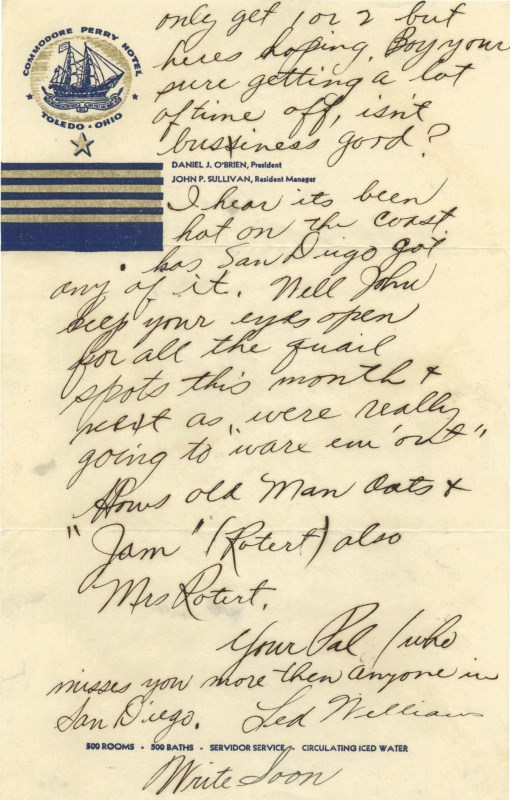 COMMODORE PERRY HOTEL
TOLEDO • OHIO
only get 1 or 2 but
heres hoping. Boy your
sure getting a lot
of time off, isn't
bussiness good?
DANIEL J. O'BRIEN, President
JOHN P. SULLIVAN, Resident Manager
I hear its been
hot on the coast
has San Diego got
any of it. Well John
keep your eyes open
for all the quail
spots this month &
next as, were really
going to "ware em' out"
Hows old Man Oats &
"Jam" (Rotert) also
Mrs Rotert.
Your Pal (who
misses you more then anyone in
San Diego. Ted Williams
500 ROOMS • 500 BATHS • SERVIDOR SERVICE • CIRCULATING ICED WATER
Write Soon